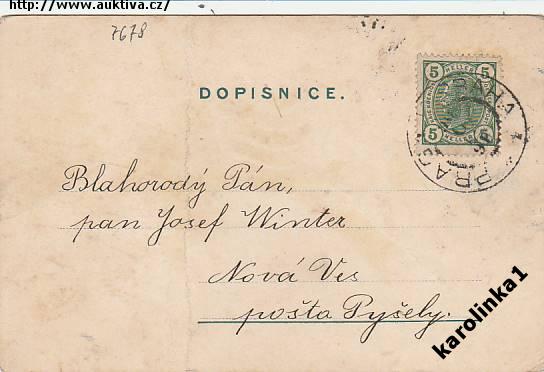 http://www.auktiva.cz/
7678
DOPISNICE.
5 5
HELLER
5 5
PRAG PRAHA 1
Blahorodý Pán,
pan Josef Winter
Nová Ves
pošta Pyšely.
karolinka1